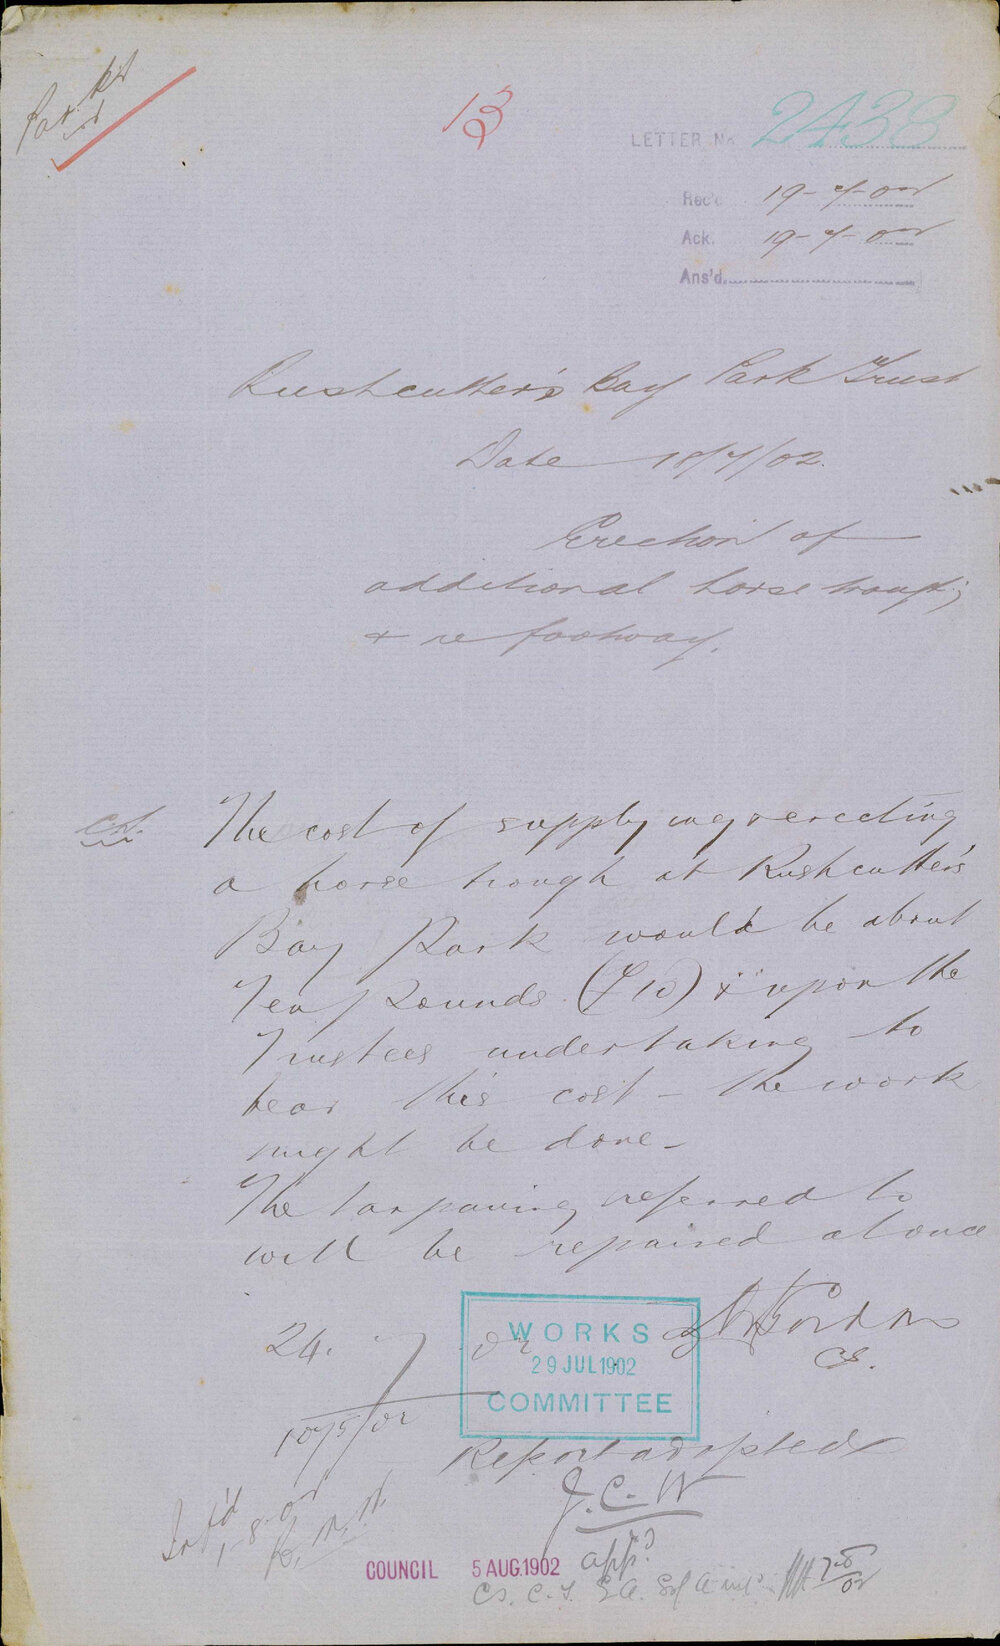 13
LETTER No. 2433
Rec'd 19-7-02
Ack. 19-7-02
Ans'd.
Rushcutter's Bay Park Trust
Date 18/7/02.
Erection of
additional horse trough;
+ re footway.
C.S.
The cost of supplying & erecting
a horse trough at Rushcutter's
Bay Park would be about
Ten Pounds (£10) & upon the
Trustees undertaking to
bear this cost – the work
might be done –
The tar paving referred to
will be repaired at once
Gordon
24. 7 02
CS.
WORKS
29 JUL 1902
COMMITTEE
1075/02
Report adopted
J.C.W
Inf'd
1-8-02
COUNCIL 5 AUG. 1902 app.d
CS. C.T.